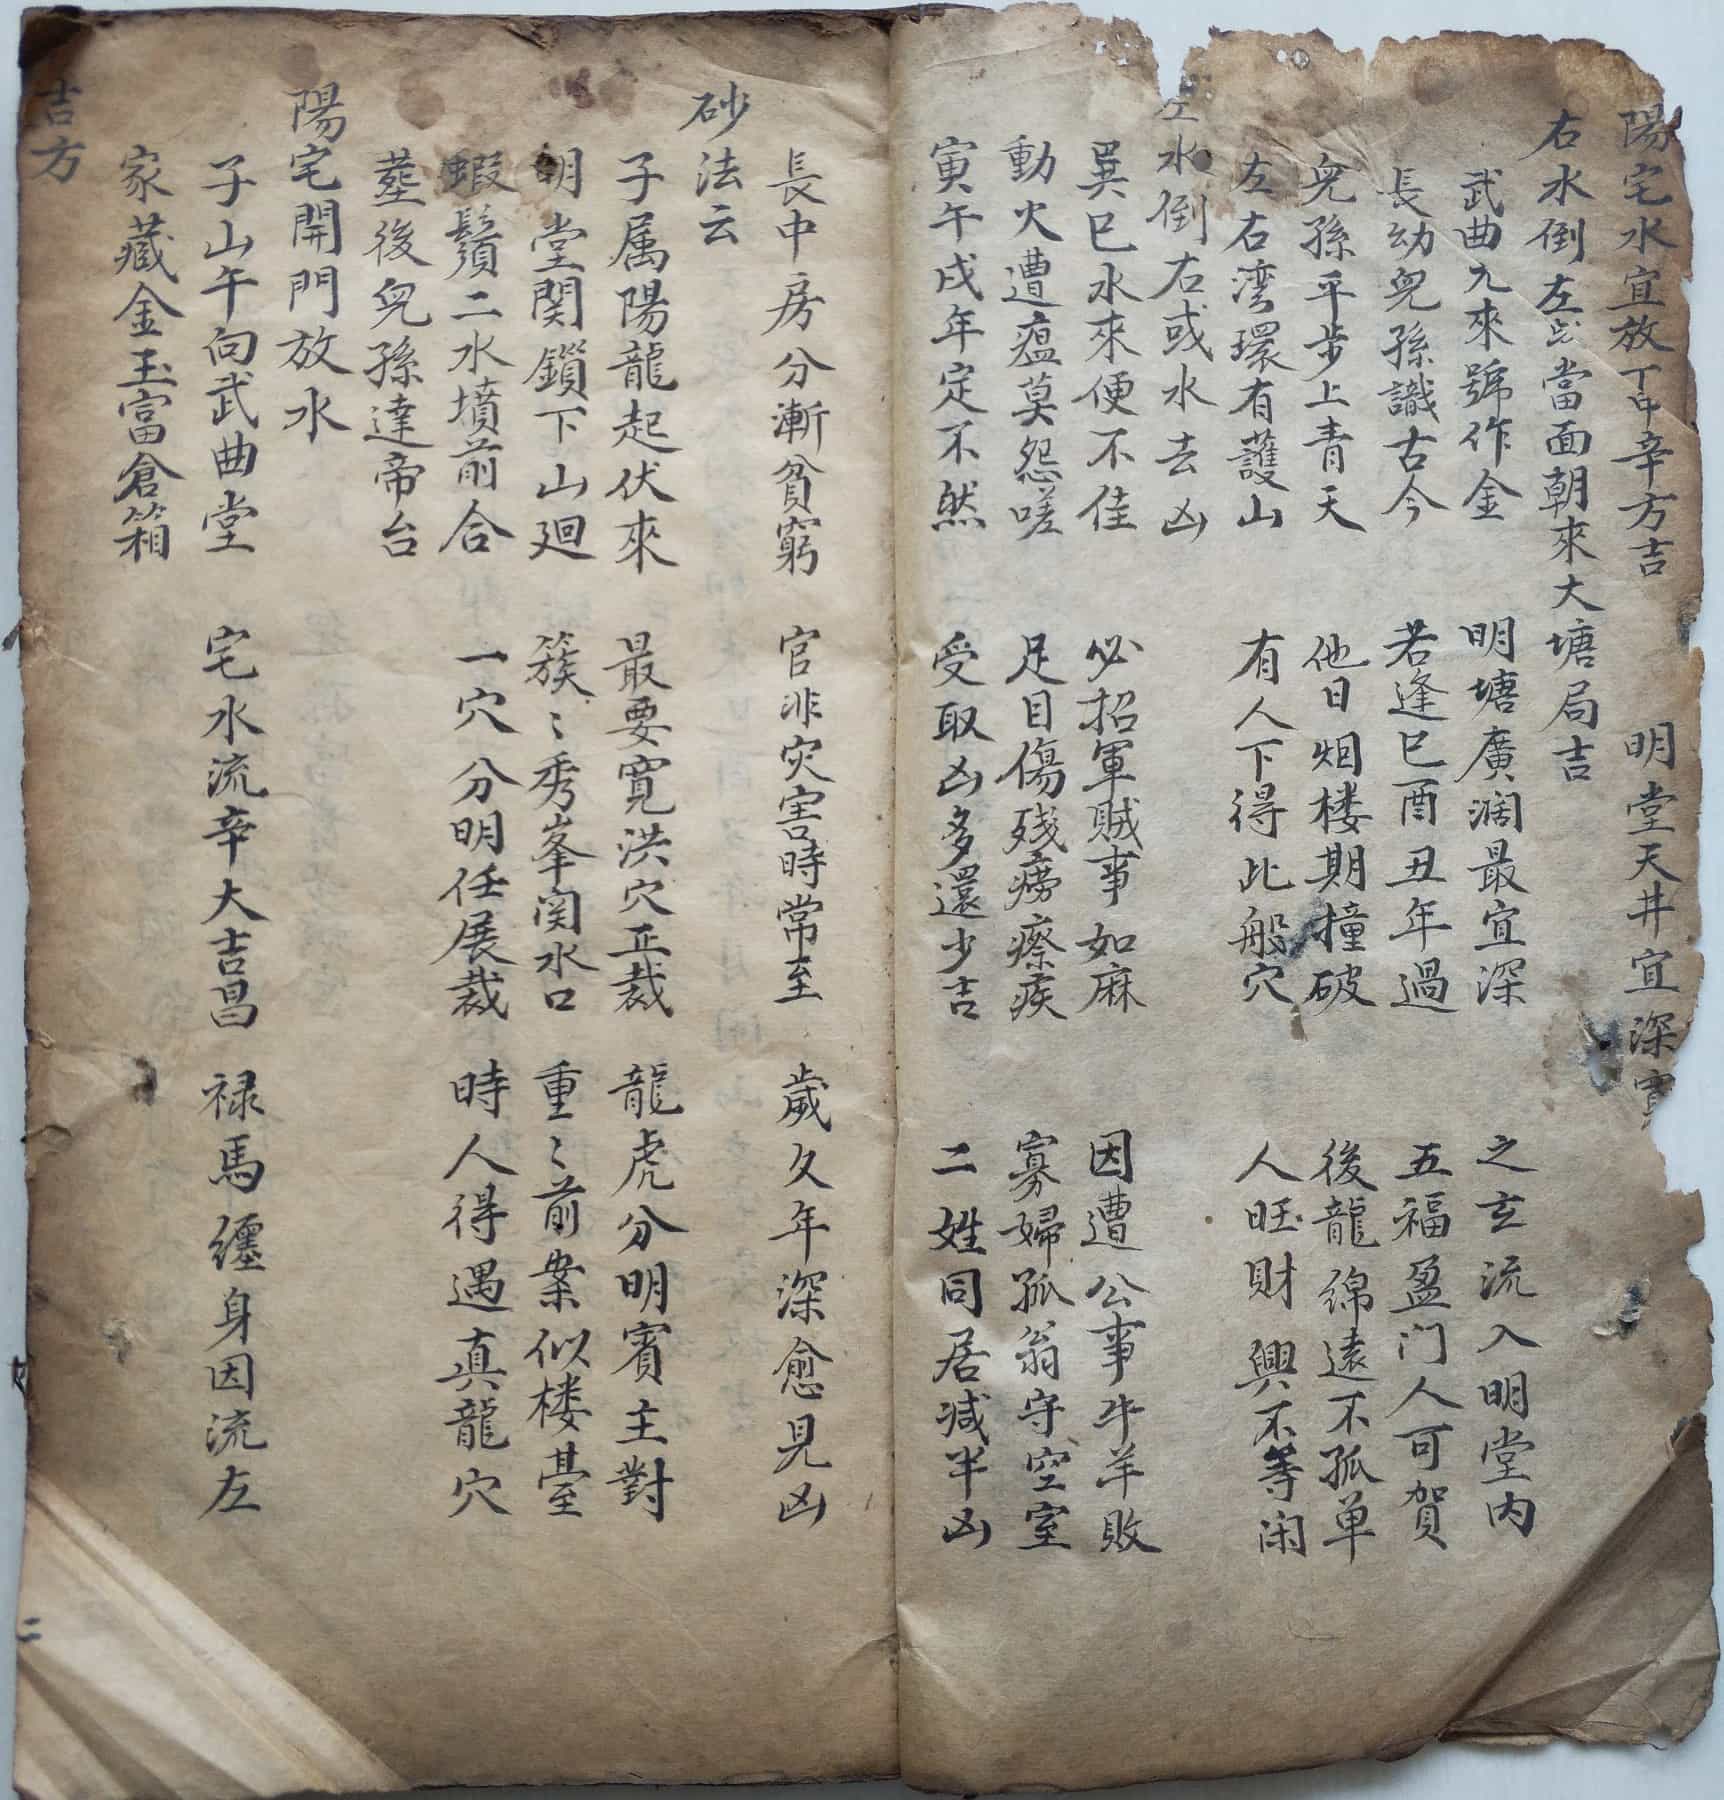 陽宅水宜放丁中辛方吉　明堂天井宜深
右水倒左 當面朝來大塘局吉
武曲九來號作金　明塘廣濶最宜深　之玄流入明堂內
長幼兒孫識古今　若逢巳酉丑年過　五福盈门人可賀
兒孫平步上青天　他日烟楼期撞破　後龍綿遠不孤单
左右湾環有護山　有人下得此般穴　人旺財興不等闲
左水倒右或水去凶
巽巳水來便不佳　必招軍賊事如麻　因遭公事牛羊敗
動火遭瘟莫怨嗟　足目傷殘癆瘵疾　寡婦孤翁守空室
寅午戌年定不然　受取凶多還少吉　二姓同居减半凶
長中房分漸貧窮　官非灾害時常至　歲久年深愈見凶
砂法云
子属陽龍起伏來　最要寬洪穴正裁　龍虎分明賓主對
明堂関鎖下山廻　簇〻秀峯関水口　重〻前案似楼臺
蝦鬚二水墳前合　一穴分明任展裁　時人得遇真龍穴
塟後兒孫達帝台
陽宅開門放水
子山午向武曲堂　宅水流辛大吉昌　禄馬纏身因流左
家藏金玉富倉箱
吉方
二